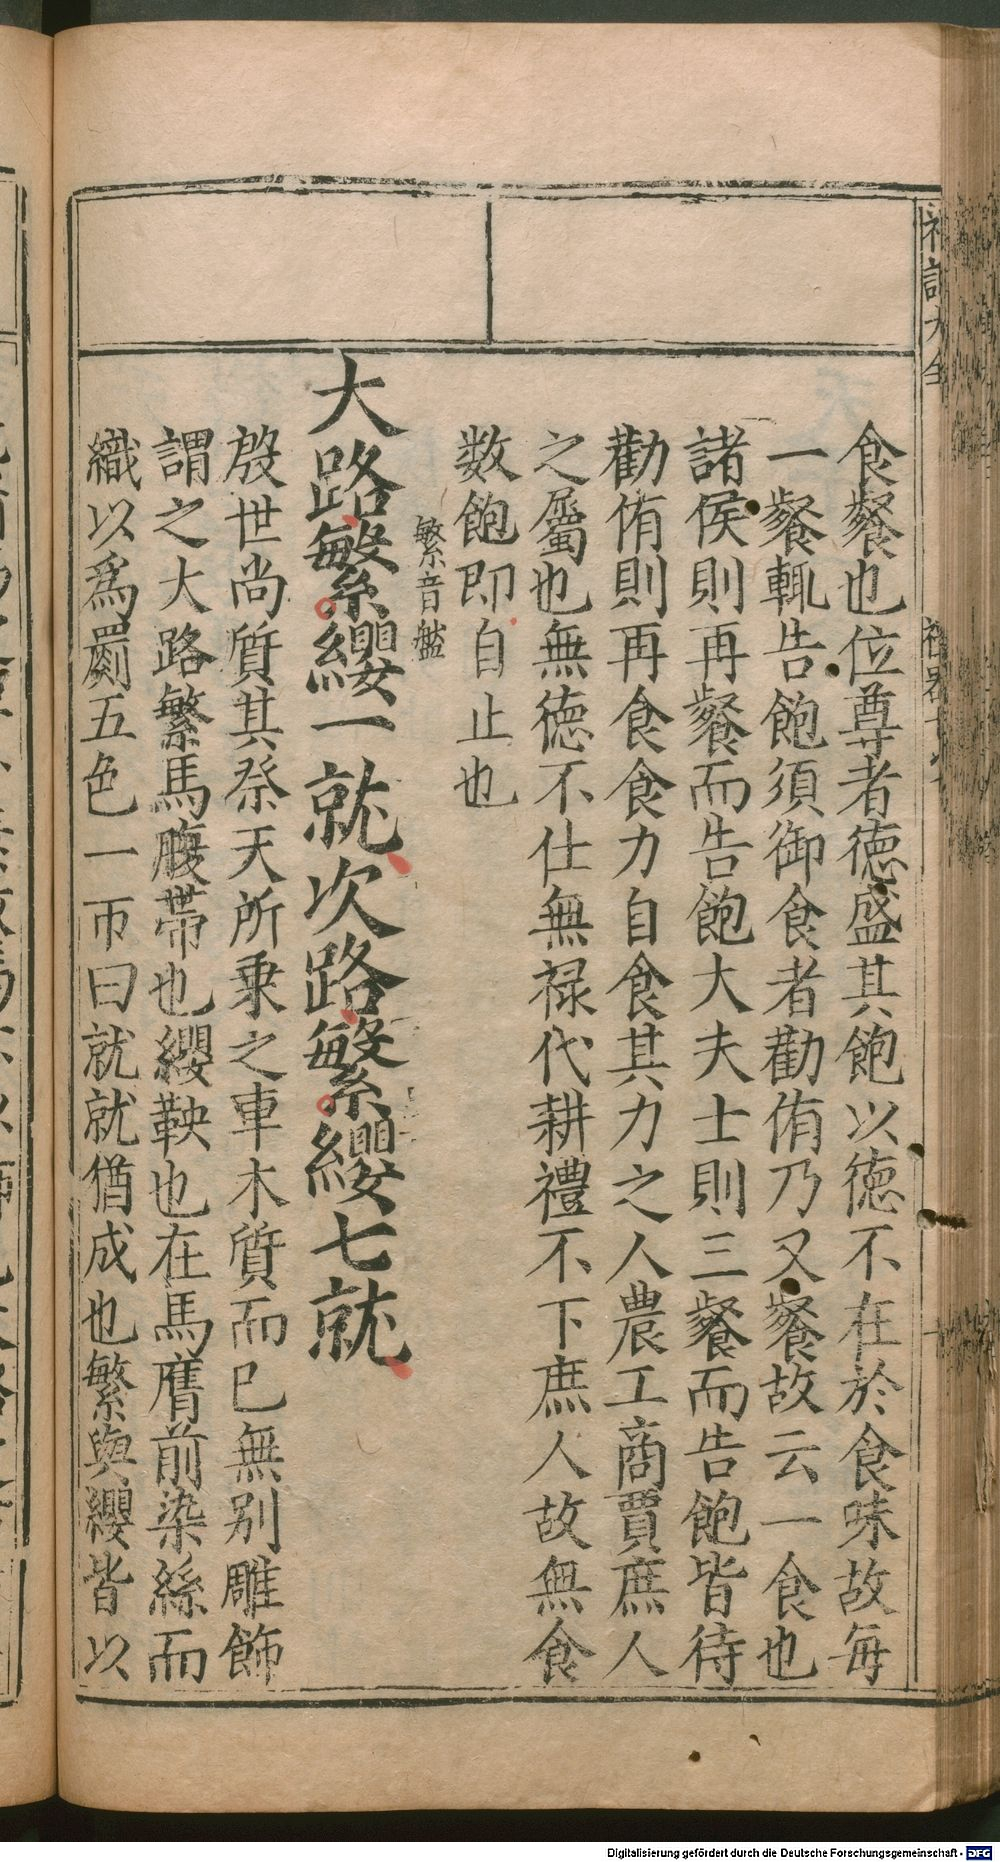 食餐也位尊者徳盛其飽以徳不在於食味故毎
一餐輙告飽須御食者勸侑乃又餐故云一食也
諸侯則再餐而告飽大夫士則三餐而告飽皆待
勸侑則再食食力自食其力之人農工商賈庶人
之屬也無徳不仕無禄代耕禮不下庶人故無食
数飽即自止也
繁音盤
大路繁纓一就次路繁纓七就
殷世尚質其祭天所乗之車木質而已無别雕飾
謂之大路繁馬腹帶也纓鞅也在馬膺前染絲而
織以爲罽五色一帀曰就就猶成也繁與纓皆以
Digitalisierung gefördert durch die Deutsche Forschungsgemeinschaft - DFG